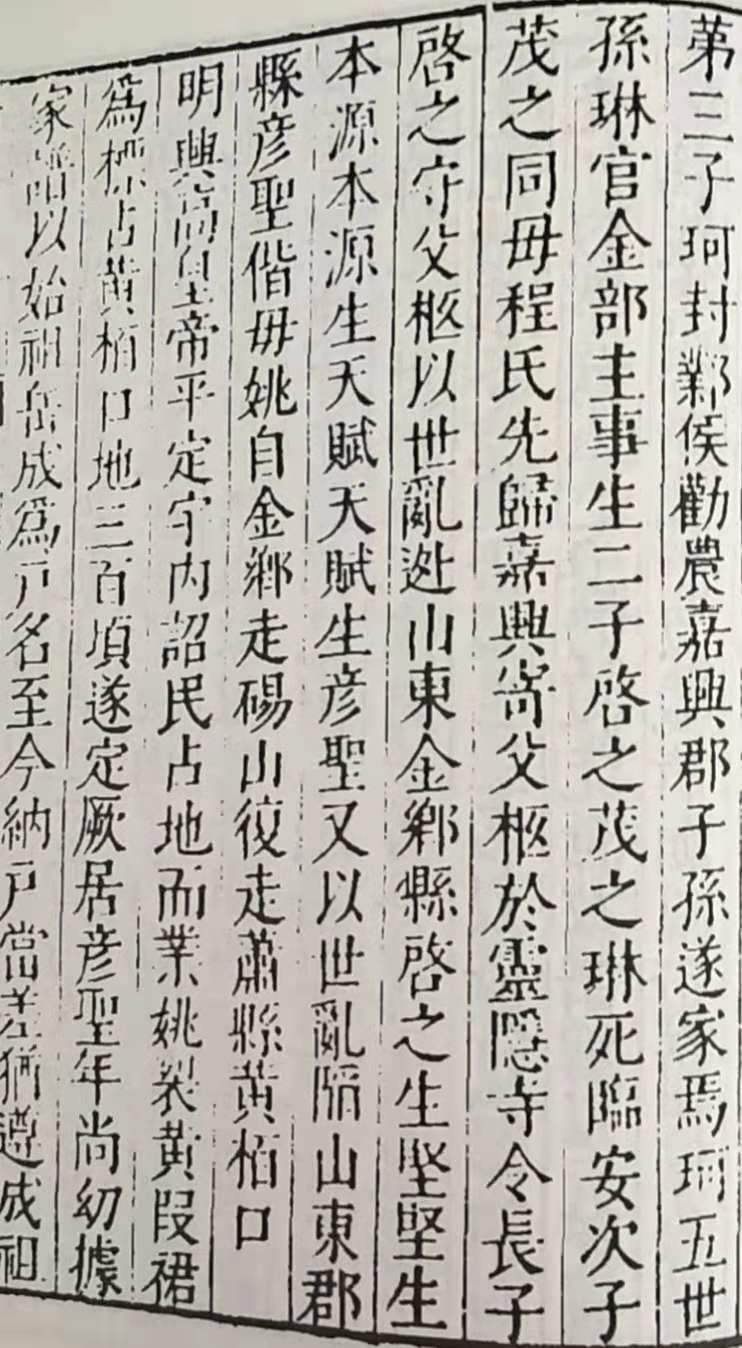 第三子珂封鄴侯勸農嘉興郡子孫遂家焉珂五世
孫琳官金部主事生二子啓之茂之琳死臨安次子
茂之同毋程氏先歸嘉興寄父柩於靈隱寺令長子
啓之守父柩以世亂迯山東金鄉縣啓之生坚坚生
本源本源生天賦天賦生彦聖又以世亂陷山東郡
縣彦聖偕毋姚自金鄉走碭山復走蕭縣黄栢口
明興高皇帝平定宇内詔民占地而業姚裂黄段裙
爲標占黄栢口地三百頃遂定厥居彦聖年尚幼據
家譜以始祖岳成爲戸名至今納戸當差猶遵成祖